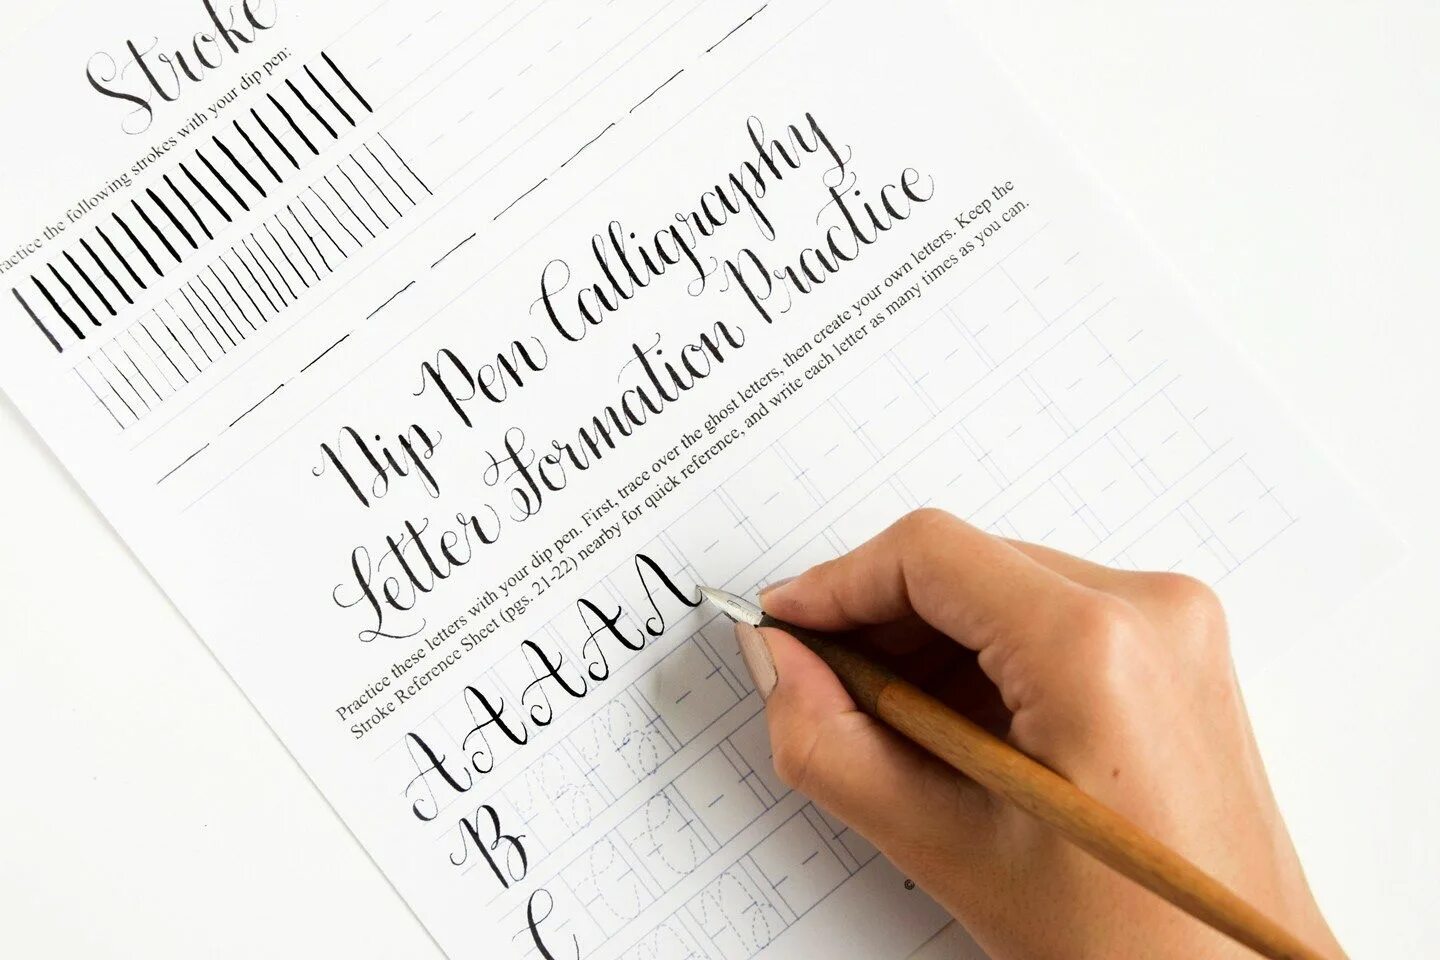 Stroke
ractice the following strokes with your dip pen:
Dip Pen Calligraphy
Letter Formation Practice
Practice these letters with your dip pen. First, trace over the ghost letters, then create your own letters. Keep the
Stroke Reference Sheet (pgs. 21-22) nearby for quick reference, and write each letter as many times as you can.
A A A A
B B B
C C C
©